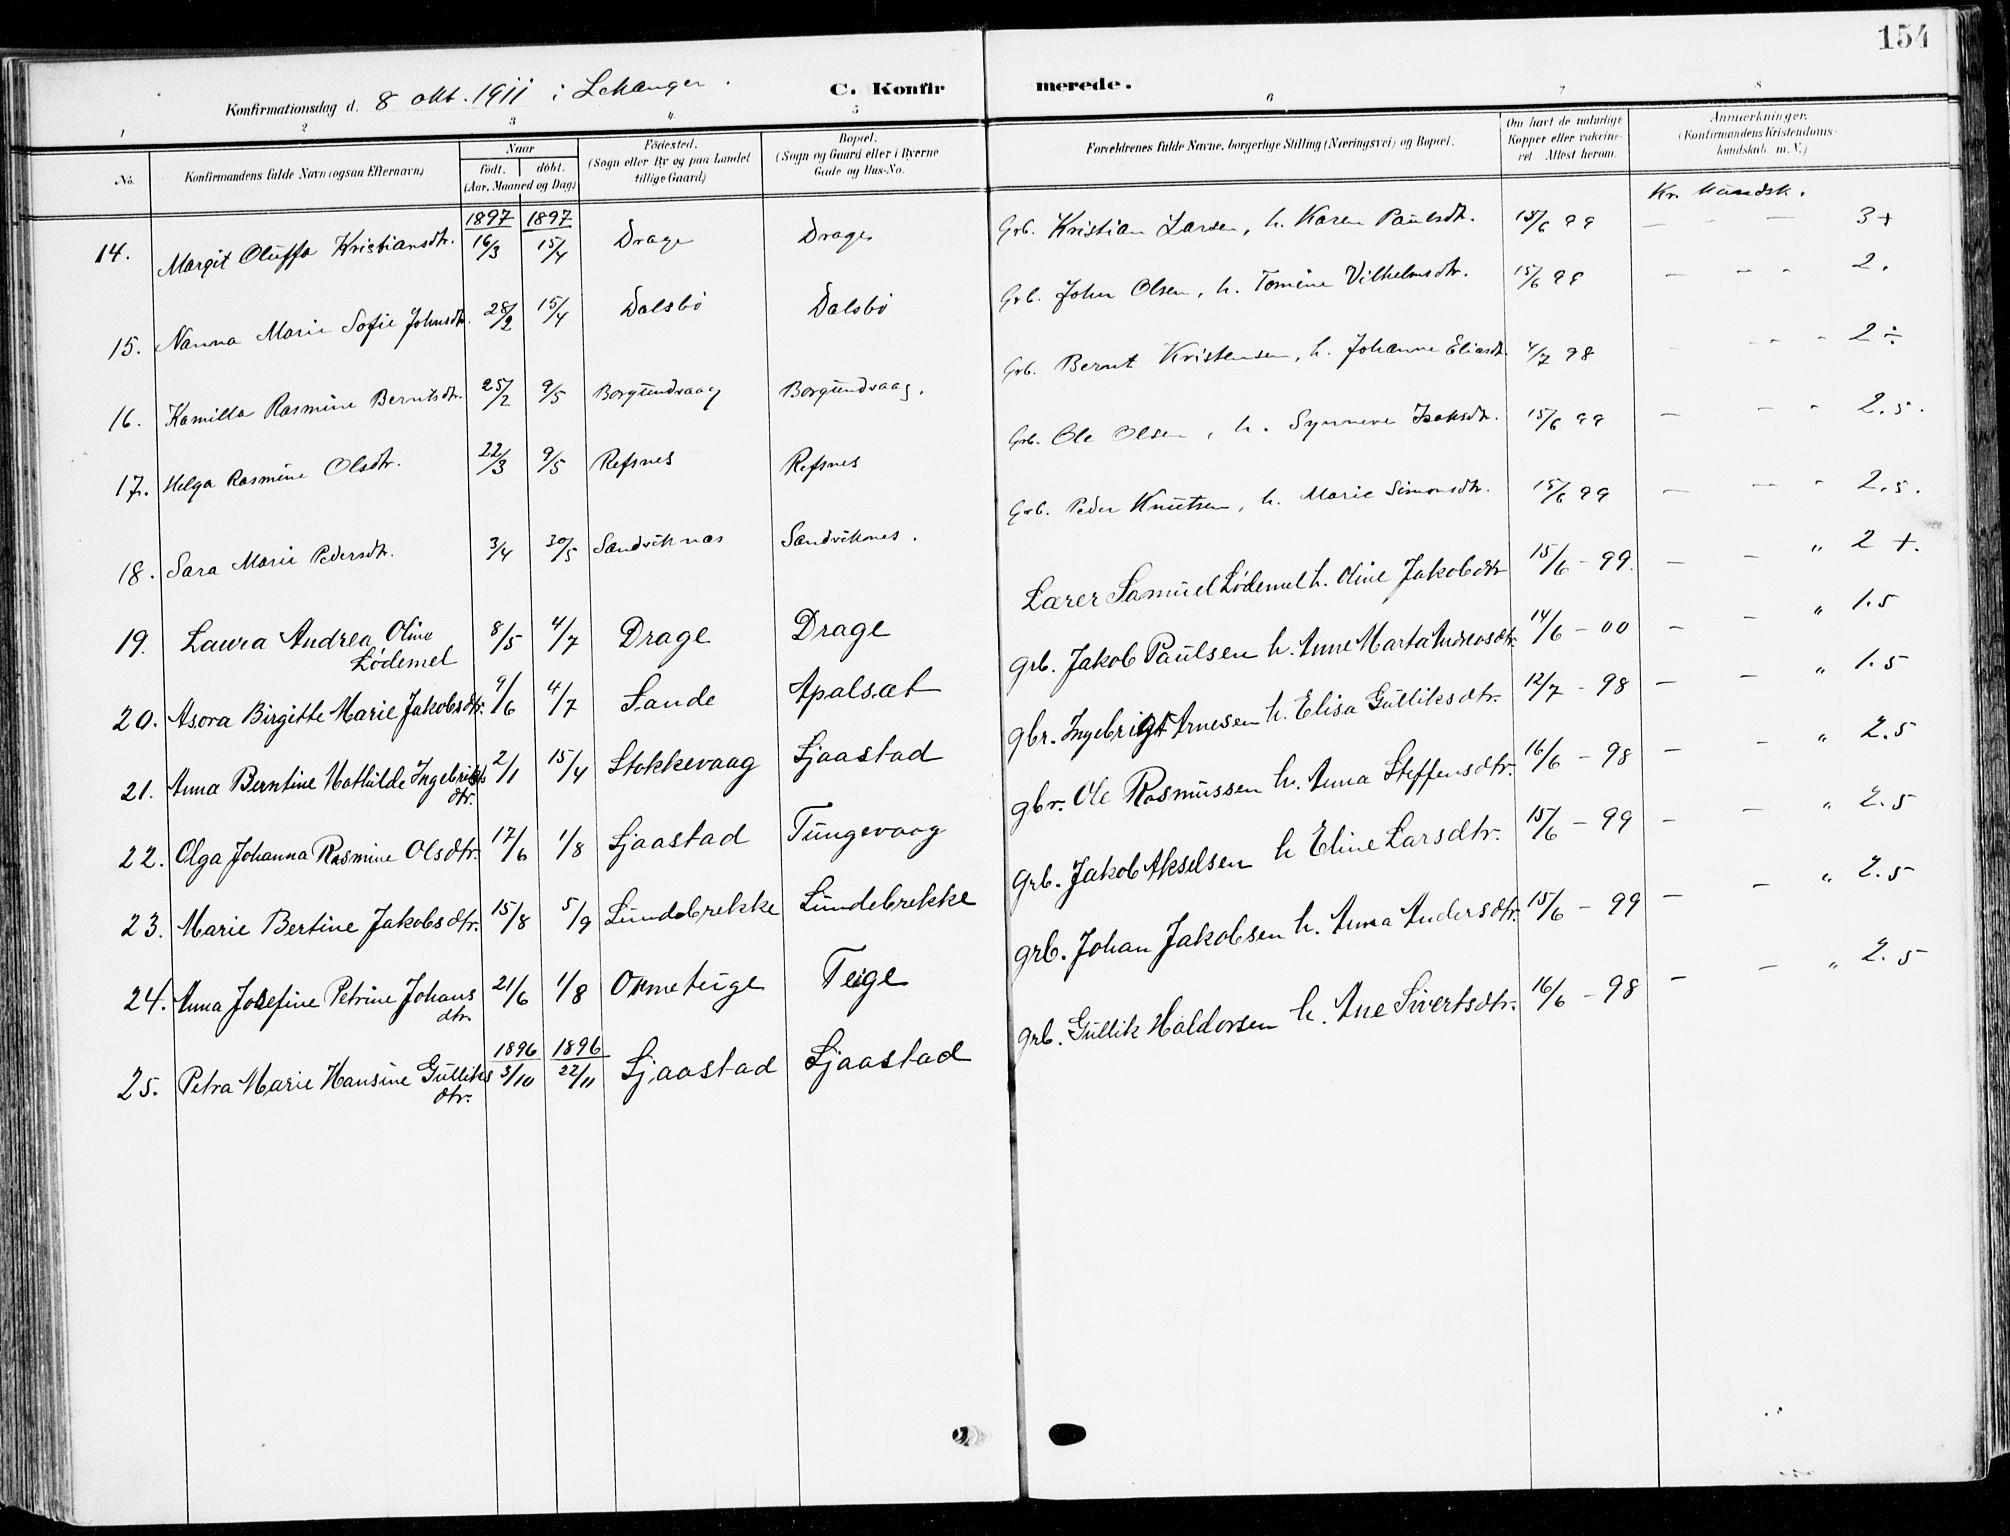 154
Konfirmationsdag d. 8 okt. 1911 i Lekanger.
C. Konfirmerede.
1 2 3 4 5 6 7 8
No. Konfirmandens fulde Navn (ogsaa Efternavn) Naar født. døbt. (Aar, Maaned og Dag) Fødested. (Sogn eller By og paa Landet tillige Gaard) Bopæl. (Sogn og Gaard eller i Byerne Gade og Hus-No. Forældrenes fulde Navne, borgerlige Stilling (Næringsvei) og Bopæl. Om havt de naturlige Kopper eller vakcineret. Attest herom. Anmerkninger. (Konfirmandens Kristendomskundskab m. V.)
1897 1897 Kr. kundsk.
14. Margit Oluffa Kristiansdtr. 16/3 15/4 Drage Drage Grb. Kristian Larsen, h. Karen Paulsdtr. 15/6 99 — - — 3+
15. Nanna Marie Sofie Johnsdtr. 28/2 15/4 Dalsbø Dalsbø Grb. John Olsen, h. Tomine Vilhelmsdtr. 15/6 99 — - - 2.
16. Kamilla Rasmine Berntsdtr. 25/2 9/5 Borgundvaag Borgundvaag. Grb. Bernt Kristensen, h. Johanne Eliasdt. 4/7 98 - - - - 2÷
17. Helga Rasmine Olsdtr. 22/3 9/5 Refsnes Refsnes Grb. Ole Olsen, h. Synneve Isaksdtr. 15/6 99 — - - 2.5.
18. Sara Marie Pedersdtr. 3/4 30/5 Sandviknæs Sandviknes. Grb. Peder Knutsen, h. Marie Simonsdtr. 15/6 99 — - - 2.5.
19. Laura Andrea Oline Lødemel 8/5 4/7 Drage Drage Lærer Samuel Lødemel h. Oline Jakobsdtr 15/6 - 99. — - " 2 +.
20. Asora Birgitte Marie Jakobsdtr. 9/6 4/7 Sande Apalsæt grb. Jakob Paulsen h. Anne Marta Andreasdtr. 14/6 - 00 - - " 1.5
21. Anna Berntine Mathilde Ingebrigtsdtr. 2/1 15/4 Stokkevaag Sjaastad gbr. Ingebrigt Arnesen h. Elisa Gulliksdtr. 12/7 - 98 — - " 1.5
22. Olga Johanna Rasmine Olsdtr. 17/6 1/8 Sjaastad Tungevaag gbr. Ole Rasmussen h. Anna Steffensdtr. 16/6 - 98 - - " 2.5
23. Marie Bertine Jakobsdtr. 15/8 5/9 Lundebrekke Lundebrekke Grb. Jakob Akselsen h Eline Larsdtr. 15/6 - 99 - — " 2.5
24. Anna Josefine Petrine Johansdtr. 21/6 1/8 Ormeteige Teige grb. Johan Jakobsen h. Anna Andersdtr. 15/6 - 99 — - " 2.5
1896 1896
25. Petra Marie Hansine Gulliksdtr. 3/10 22/11 Sjaastad Sjaastad grb. Gullik Haldorsen h. Ane Sivertsdtr. 16/6 - 98 - - " 2.5